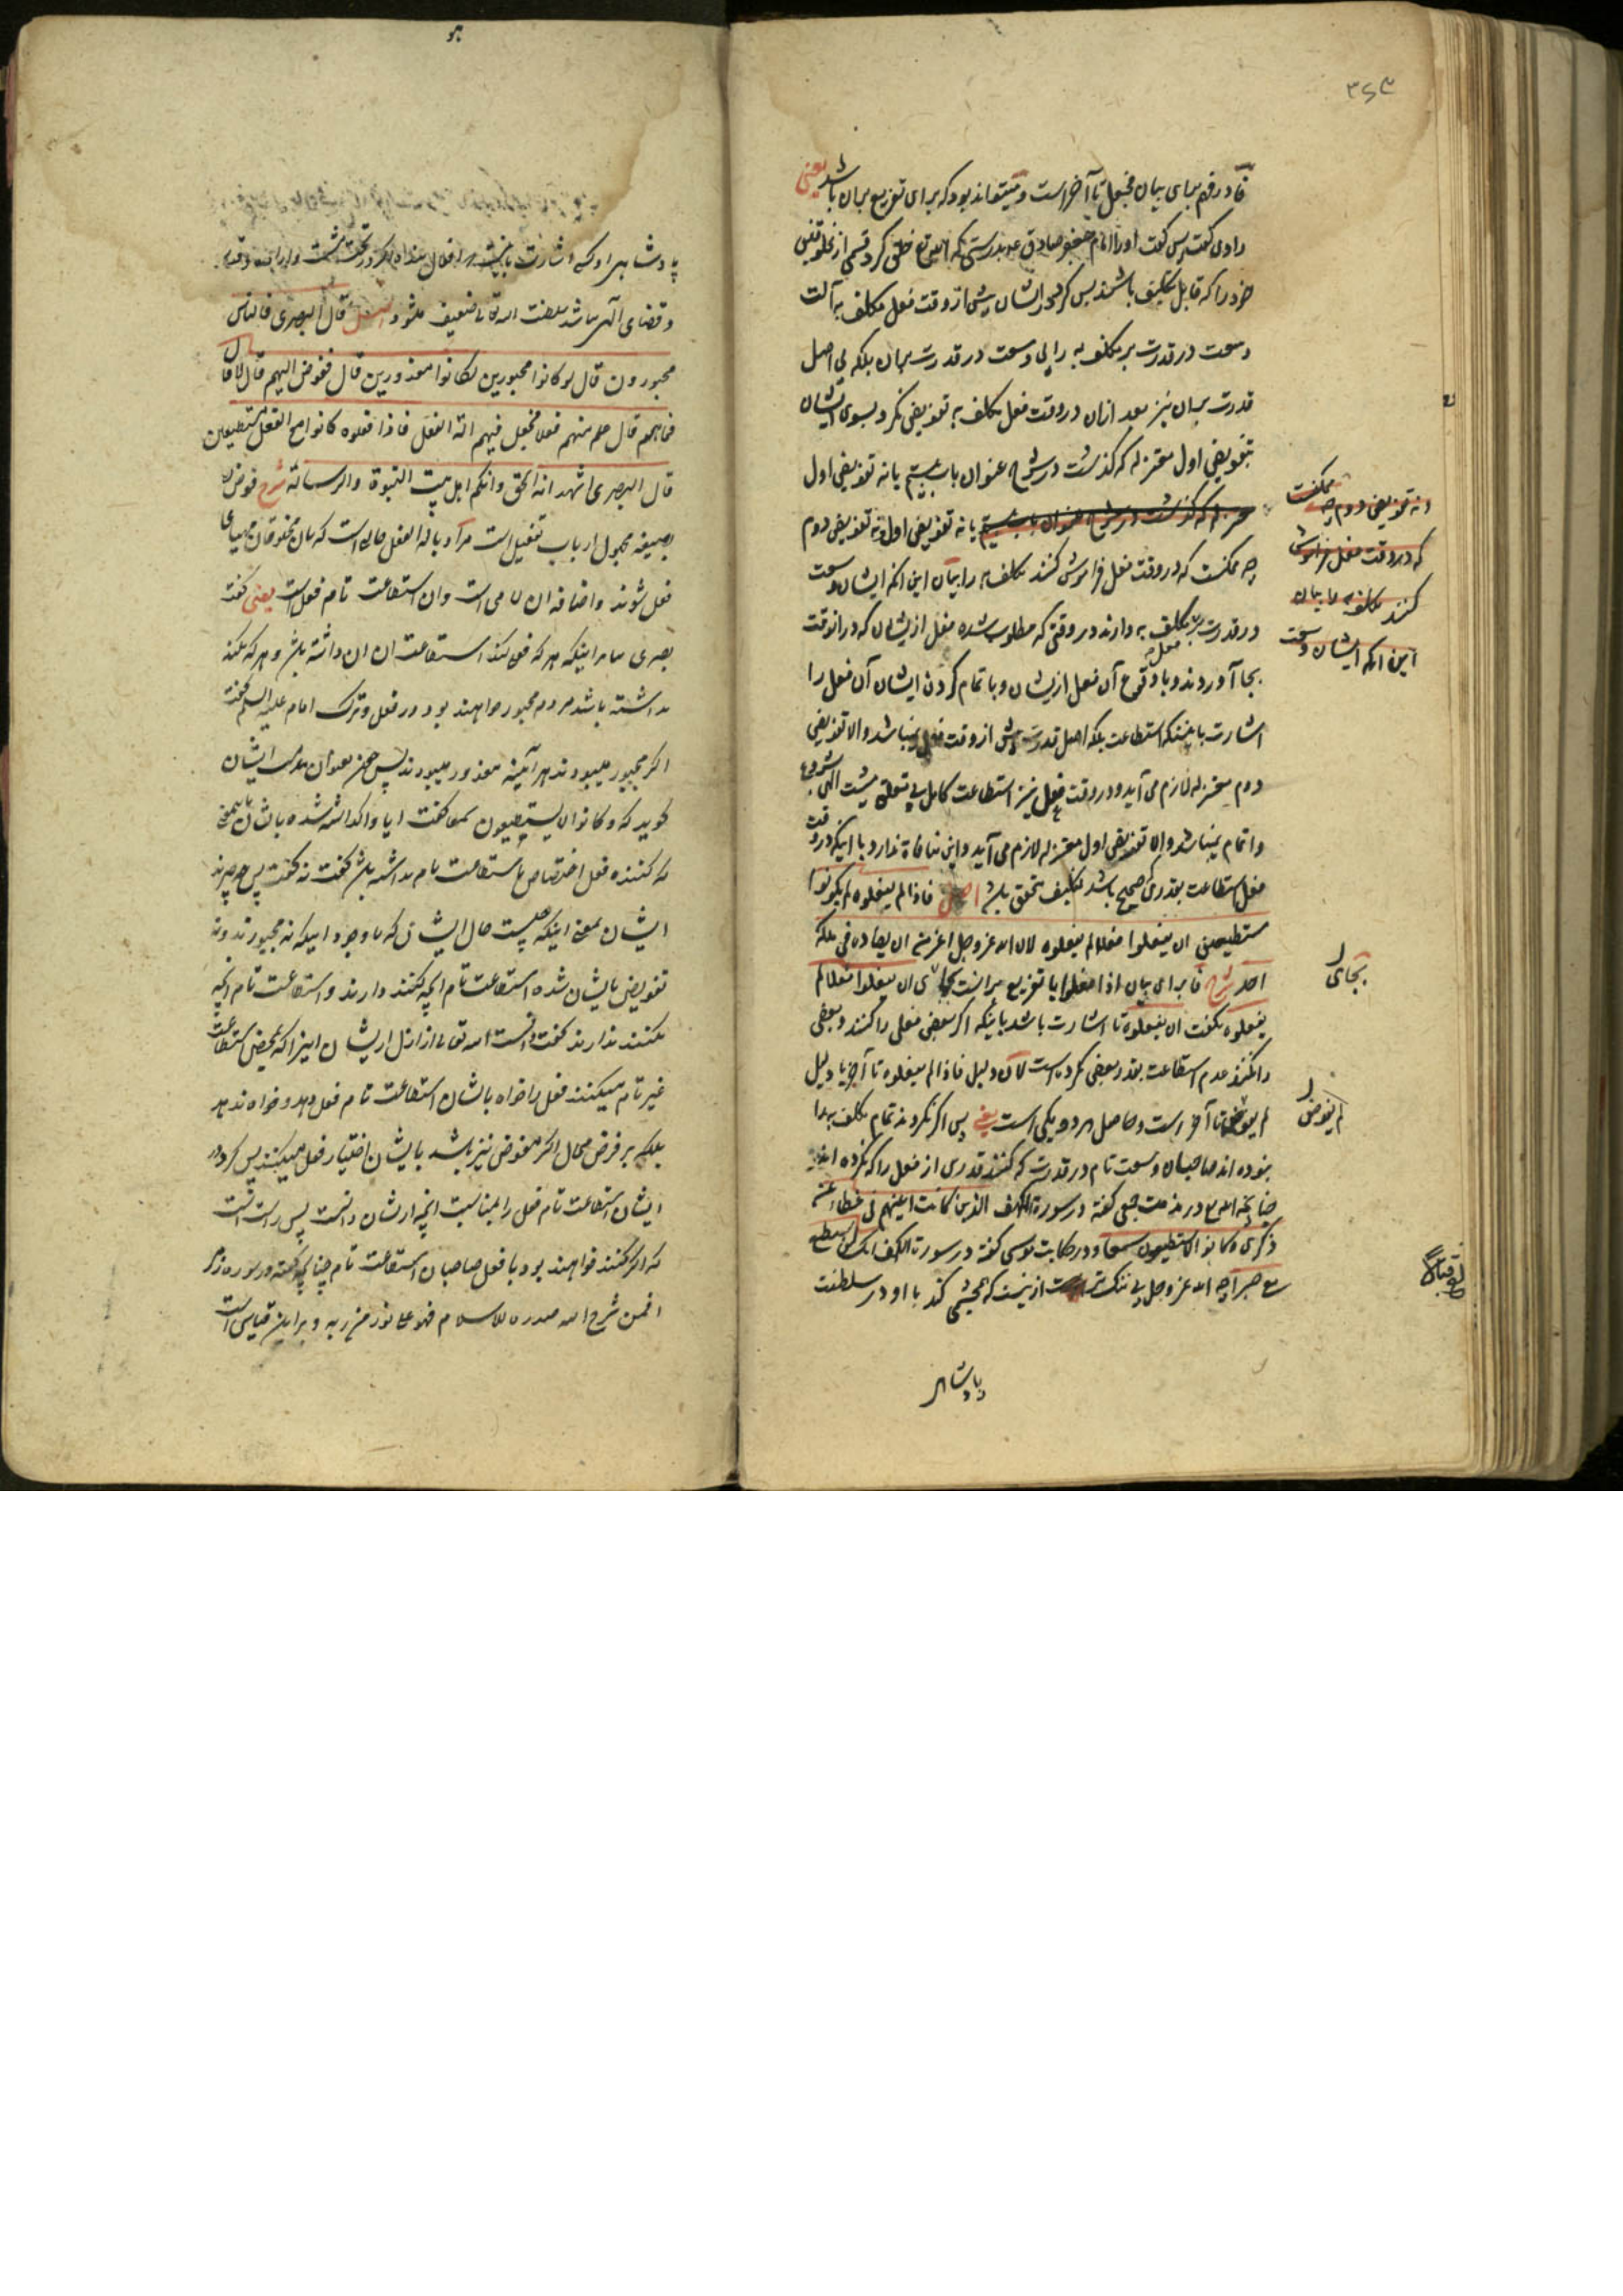 ۳۶۳
فا در فهم برای بیان فجعل تا آخر است و میتواند بود که برای تفریع بر آن باشد یعنی
راوی گفت پس گفت او را امام جعفر صادق بدرستی که الله تع خلق کرد قسمی از مخلوقین
خود را که قابل تکلیف باشند پس کرد در ایشان پیش از وقت فعل مکلف به آلت
وسعت در قدرت بر مکلف به را بی وسعت در قدرت بر آن بلکه بی اصل
قدرت بر آن نیز بعد از آن در وقت فعل مکلف به تفویض نکرد بسوی ایشان
بتفویض اول معتزله که گذشت در شرح عنوان باب یا نه تفویض اول
یا نه تفویض اول و نه تفویض دوم
چه ممکنست که در وقت فعل فراموش کنند مکلف به را بیان این آنکه ایشان وسعت
در قدرت بر مکلف به دارند در وقتی که مطلوب شده فعل از ایشان که در آن وقت
بجا آوردند و با وقوع آن فعل از ایشان و با تمام کردن ایشان آن فعل را
اشارت باینکه استطاعت بلکه اصل قدرت پیش از وقت فعل نمیباشد والا تفویض
دوم معتزله لازم می آید و در وقت فعل نیز استطاعت کامل بی تعلق مشیت الهی بشروع
و اتمام نمیباشد والا تفویض اول معتزله لازم می آید و این منافاة ندارد با اینکه در وقت
فعل استطاعت بقدری که صحیح باشد تکلیف متحقق باشد اصل فاذا لم یفعلوه لم یکونوا
مستطیعین ان یفعلوا فعلا لم یفعلوه لان الله عز وجل اعز من ان یضاده فی ملکه
احد شرح فا برای بیان اذا فعلوا یا تفریع بر آنست بجای ان یفعلوا فعلا لم
یفعلوه نگفت ان یفعلوه تا اشارت باشد باینکه اگر بعض فعلی را کنند و بعضی
را نکنند عدم استطاعت بقدر بعضی نکرده است لان دلیل فاذا لم یفعلوه تا آخر یا دلیل
لم یفوض تا آخر است و حاصل هر دو یکی است یعنی پس اگر نکردند تمام مکلف به را
نبوده اند صاحبان وسعت تام در قدرت که کنند قدری از فعل را که نکرده اند
چنانچه الله تع در مذمت جمعی گفته در سورة الکهف الذین کانت اعینهم فی غطاء عن
ذکری و کانوا لا یستطیعون سمعا و در حکایت موسی گفته در سورت الکهف انک لن تستطیع
معی صبرا چه الله عز وجل بی ننگ تر است از این که همچشمی کند با او در سلطنت
پادشاهی
و نه تفویض دوم چه ممکنست
که در وقت فعل فراموش
کنند مکلف به را بیان
این آنکه ایشان وسعت
بجای
لم یفوض
پادشاهی او کسی اشارت باینست
و قضای الهی نباشد سلطنت الله تعالی ضعیف میشود اصل قال البصری فالناس
مجبورون قال لو کانوا مجبورین لکانوا معذورین قال ففوض الیهم قال لا قال
فما هم قال علم منهم فعلا فجعل فیهم آلة الفعل فاذا فعلوه کانوا مع الفعل مستطیعین
قال البصری اشهد انه الحق وانکم اهل بیت النبوة والرسالة شرح فوض
بصیغه مجهول از باب تفعیل است مراد بآلة الفعل حالی است که بآن مخلوقان مهیای
فعل شوند و اضافه آن لامی است و آن استطاعت تام فعل است یعنی گفت
بصری بنابر اینکه هر که فعل کند استطاعت آن داشته باشد و هر که نکند
نداشته باشد مردم مجبور خواهند بود در فعل و ترک امام علیه السلم گفت
اگر مجبور میبودند هر آینه معذور میبودند پس بعنوان مذمت ایشان
گوید که و کانوا لا یستطیعون سمعا گفت آیا واگذاشته شده بایشان بمعنی
که کننده فعل اختصاص باستطاعت تام نداشته باشد گفت نه گفت پس چه چیزند
ایشان بمعنی اینکه چیست حال ایشان که با وجود اینکه نه مجبورند و نه
تفویض بایشان شده استطاعت تام آنچه کنند دارند و استطاعت تام آنچه
نکنند ندارند گفت دانست الله تعالی از ازل از ایشان اینرا که بمحض استطاعت
غیر تام میکنند فعل را خواه بایشان استطاعت تام فعل دهد و خواه ندهد
بلکه بر فرض محال اگر مفوض نیز باشد بایشان اختیار فعل میکنند پس کرد در
ایشان استطاعت تام فعل را بمناسبت آنچه از ایشان دانست پس راست است
که اگر کنند خواهند بود با فعل صاحبان استطاعت تام چنانچه گفته در سوره زمر
افمن شرح الله صدره للاسلام فهو علی نور من ربه و بر این قیاس است